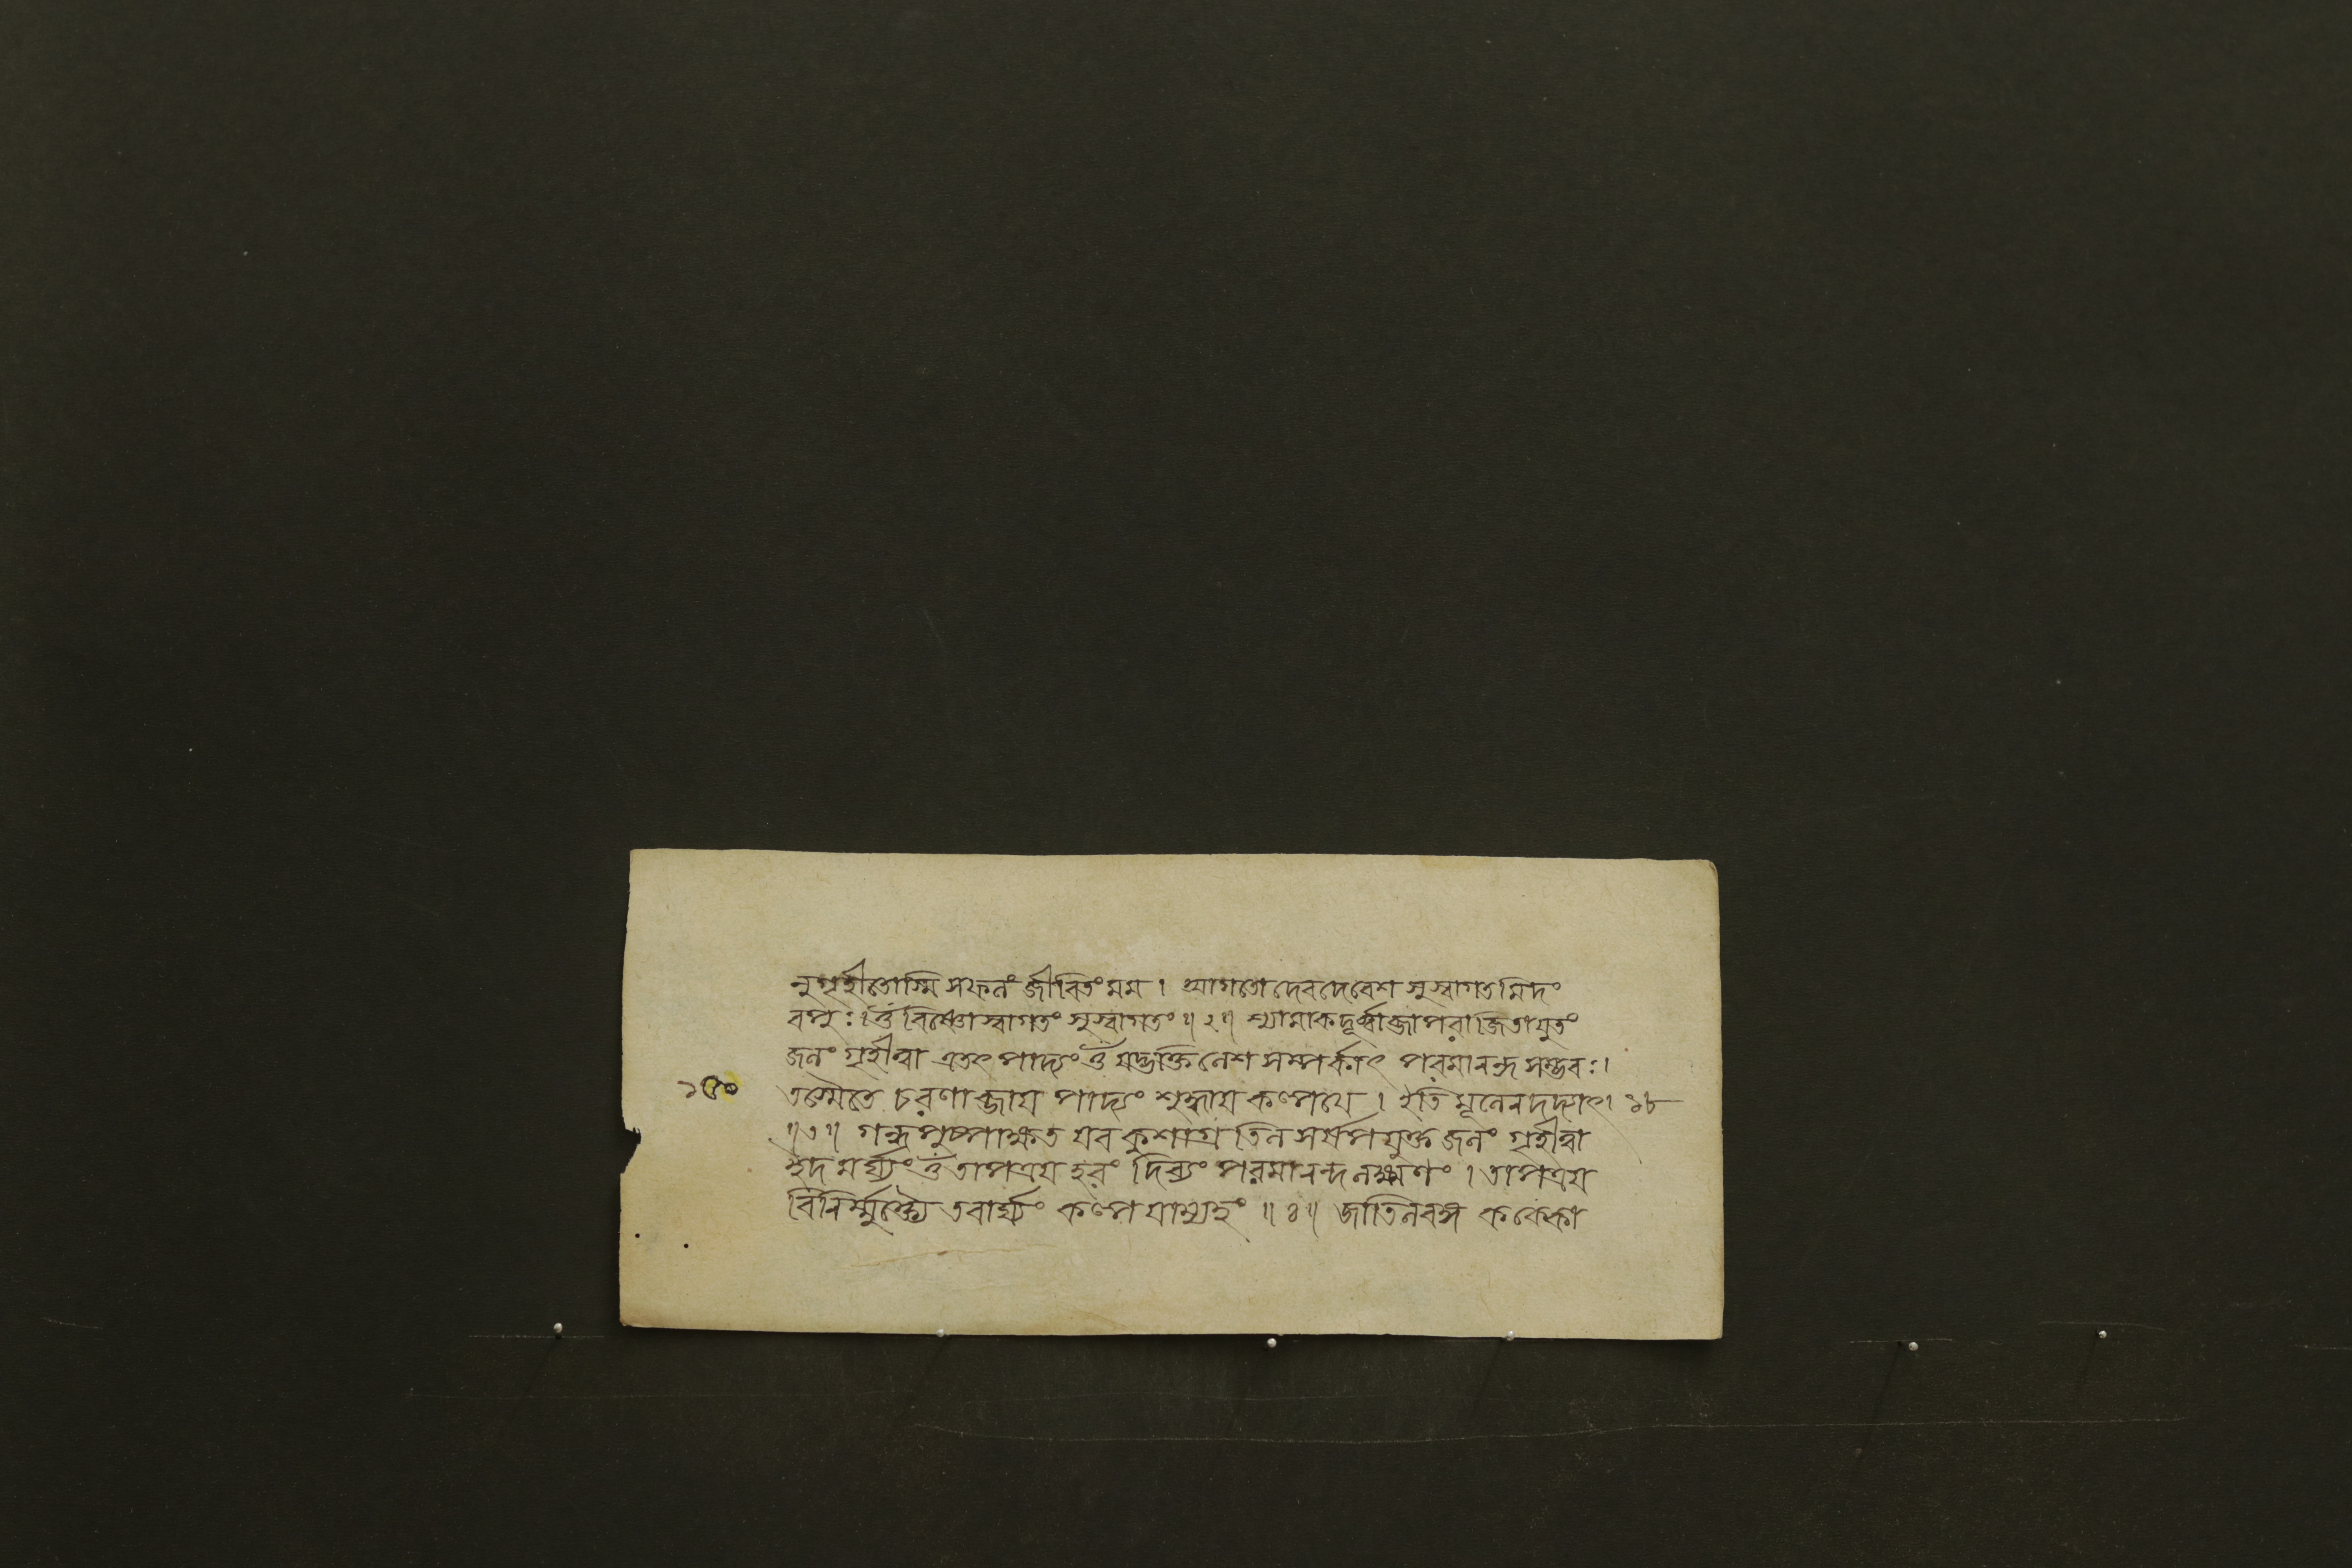 নুগৃহীতোস্মি সফলং জীবিতং মম । আগতো দেবদেবেশ সুস্বাগতমিদং
বপুঃ । ওঁ বিষ্ণো স্বাগতং সুস্বাগতং ॥ ২ ॥ শ্যামাকদূর্ব্বাব্জাপরাজিতাযুতং
জলং গৃহীত্বা এতৎ পাদ্যং ওঁ যদ্ভক্তিলেশ সম্পর্কাৎ পরমানন্দ সম্ভবঃ ।
১৫০ তস্মৈতে চরণাব্জায পাদ্যং শুদ্ধায কল্পযে । ইতি মূলেন দদ্যাৎ । ১৮
॥ ৩ ॥ গন্ধপুষ্পাক্ষত যব কুশাগ্র তিল সর্ষপযুক্ত জলং গৃহীত্বা
ইদমর্ঘ্যং ওঁ তাপত্রয হরং দিব্যং পরমানন্দ লক্ষণং । তাপত্রয
বিনির্ম্মুক্ত্যৈ তবার্ঘ্যং কল্পযাম্যহং ॥ ৪ ॥ জাতিলবঙ্গ কক্কো